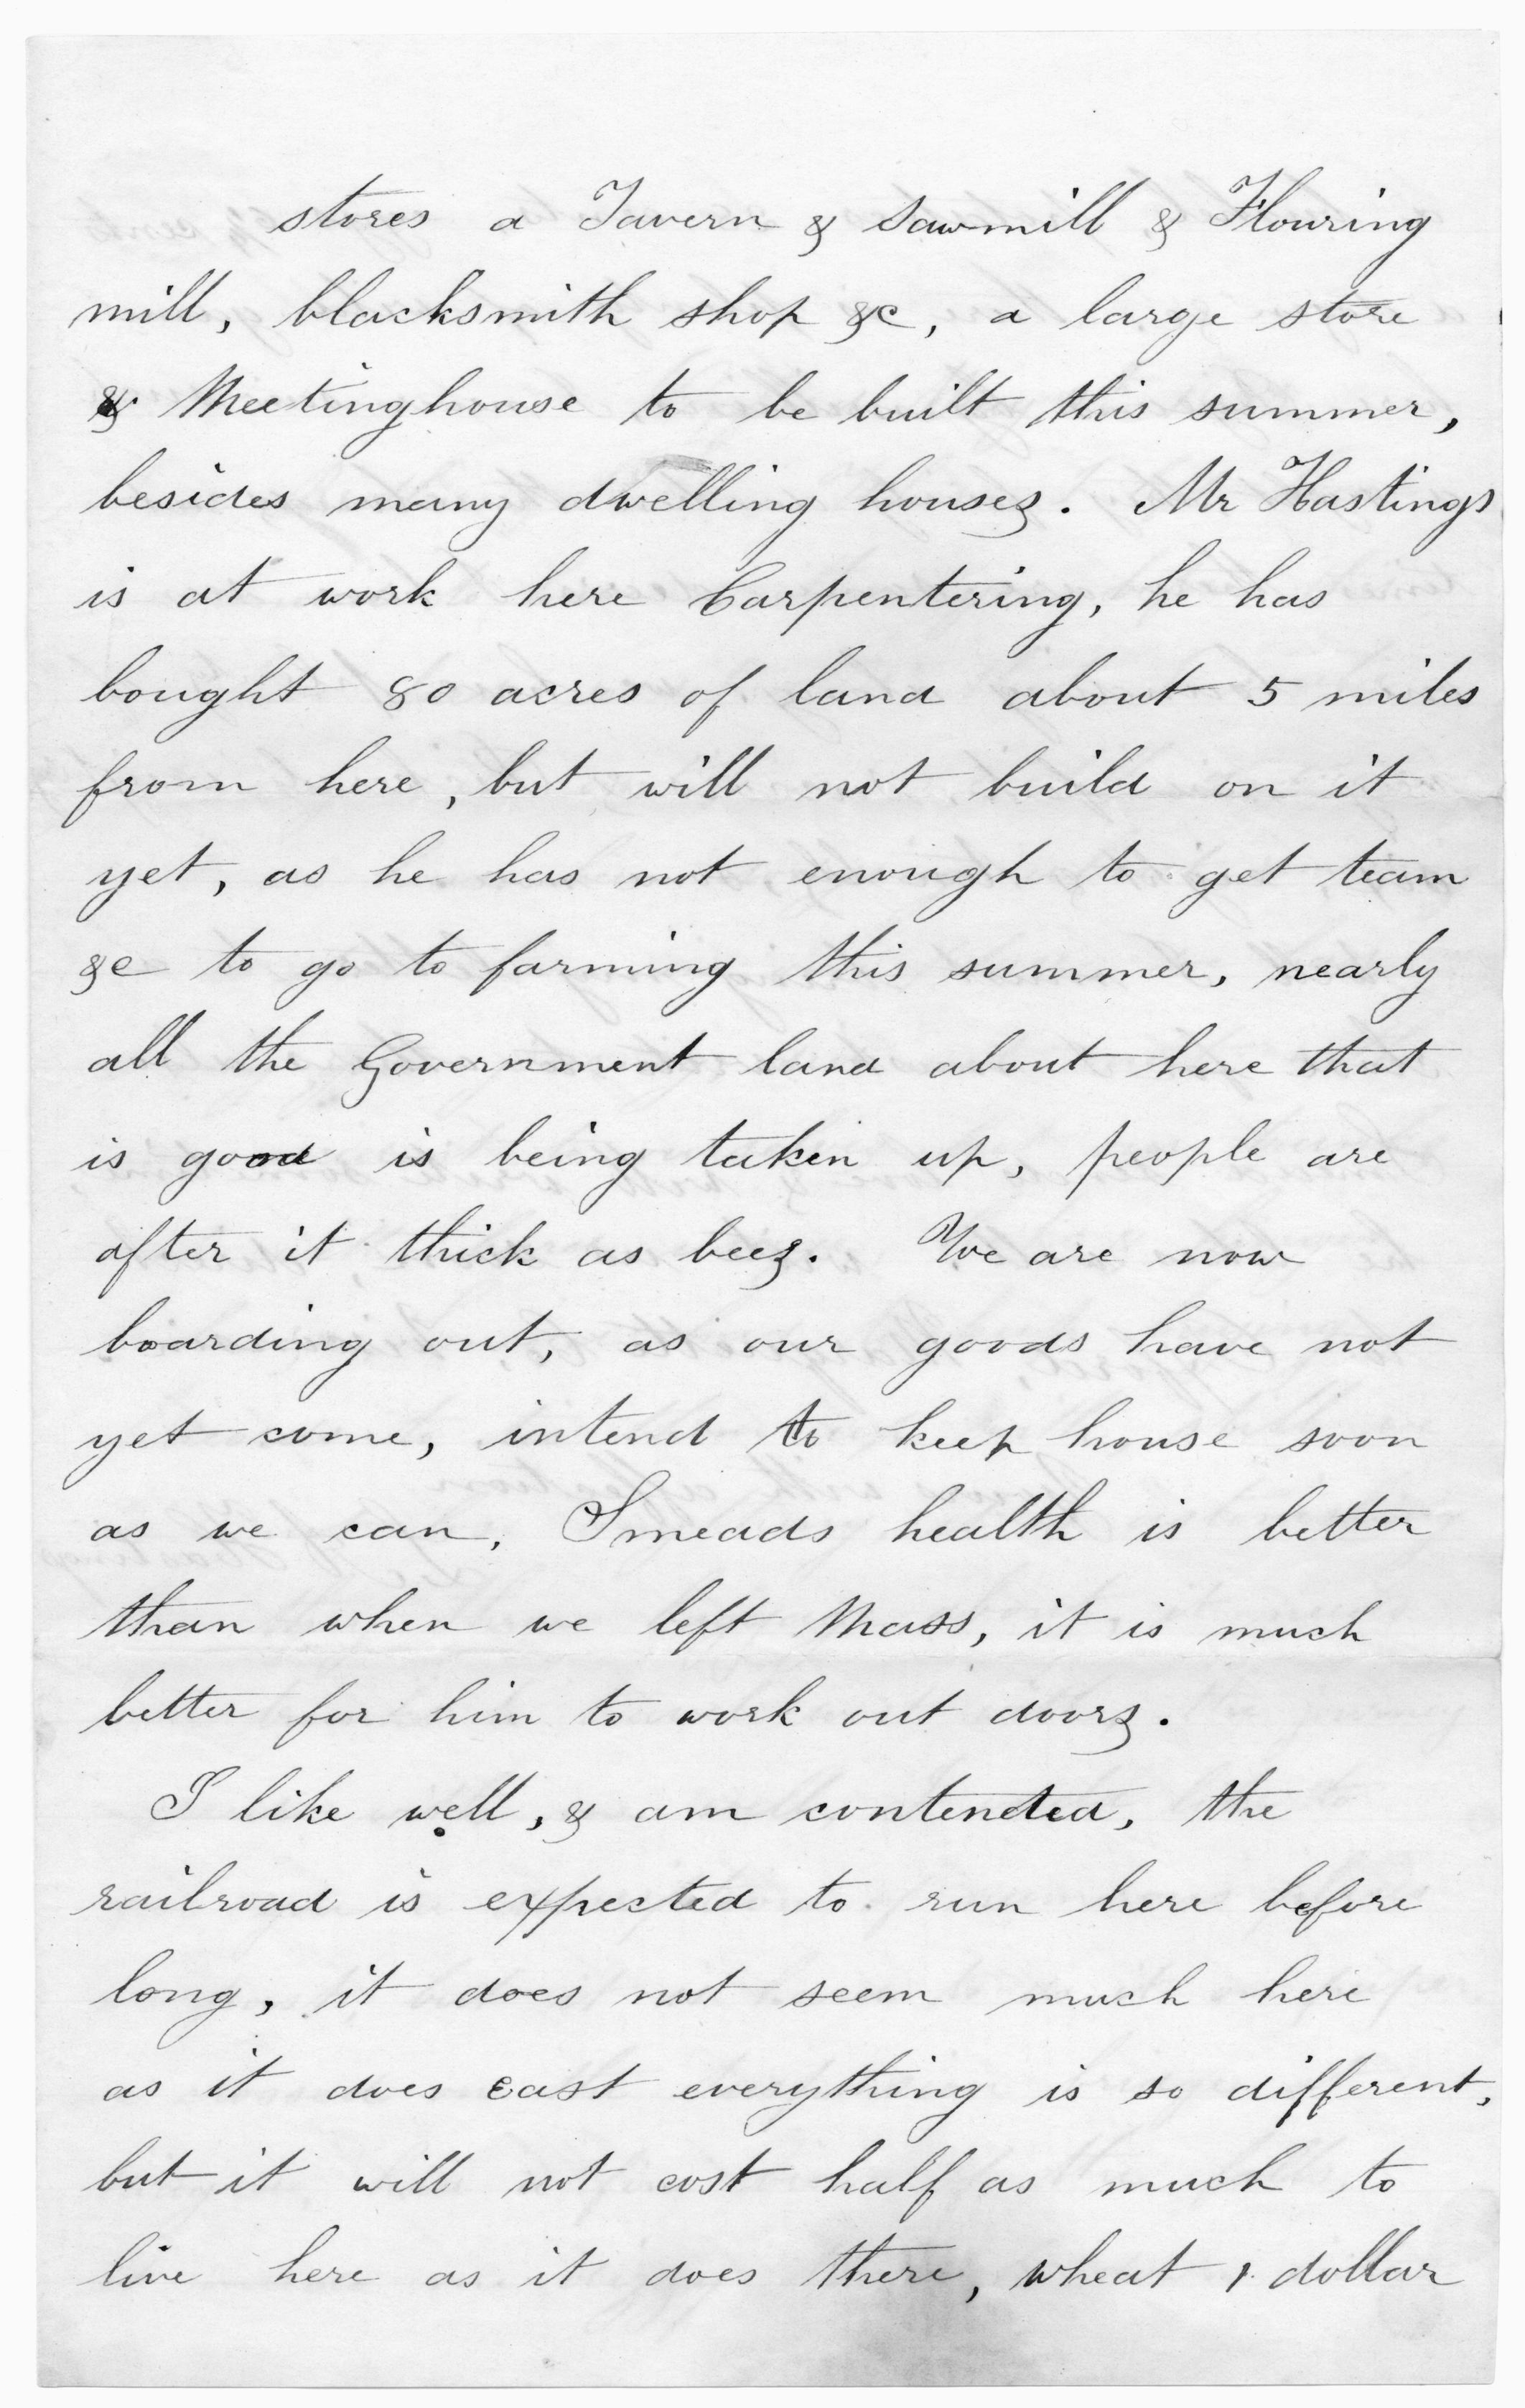 stores a Tavern & Sawmill & Flouring
mill, blacksmith shop &c, a large store
& Meetinghouse to be built this summer,
besides many dwelling houses. Mr Hastings
is at work here Carpentering, he has
bought 80 acres of land about 5 miles
from here, but will not build on it
yet, as he has not enough to get team
&c to go to farming this summer, nearly
all the Government land about here that
is good is being taken up, people are
after it thick as bees. We are now
boarding out, as our goods have not
yet come, intend to keep house soon
as we can, Smeads health is better
than when we left Mass, it is much
better for him to work out doors.
I like well, & am contented, the
railroad is expected to run here before
long, it does not seem much here
as it does east everything is so different,
but it will not cost half as much to
live here as it does there, wheat 1 dollar